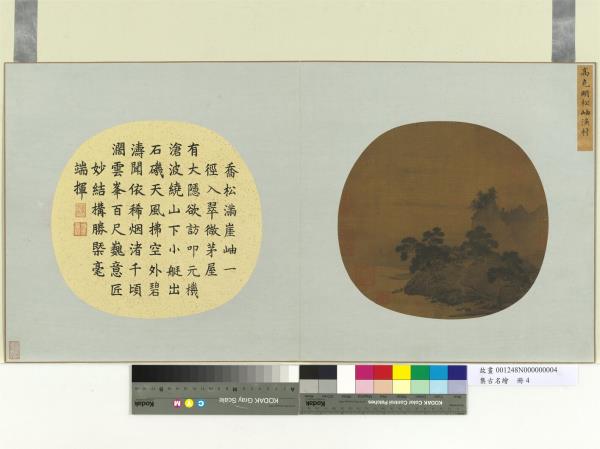 高克明松岫漁村
喬松滿崖岫一
徑入翠微茅屋
有大隱欲訪叩元機
滄波繞山下小艇出
石磯天風拂空外碧
濤聞依稀烟渚千頃
瀾雲峯百尺巍意匠
妙結構勝槩毫
端揮
故畫 001248N000000004
集古名繪 冊 4
Kodak
C Y M
KODAK Gray Scale
Kodak
KODAK Color Control Patches